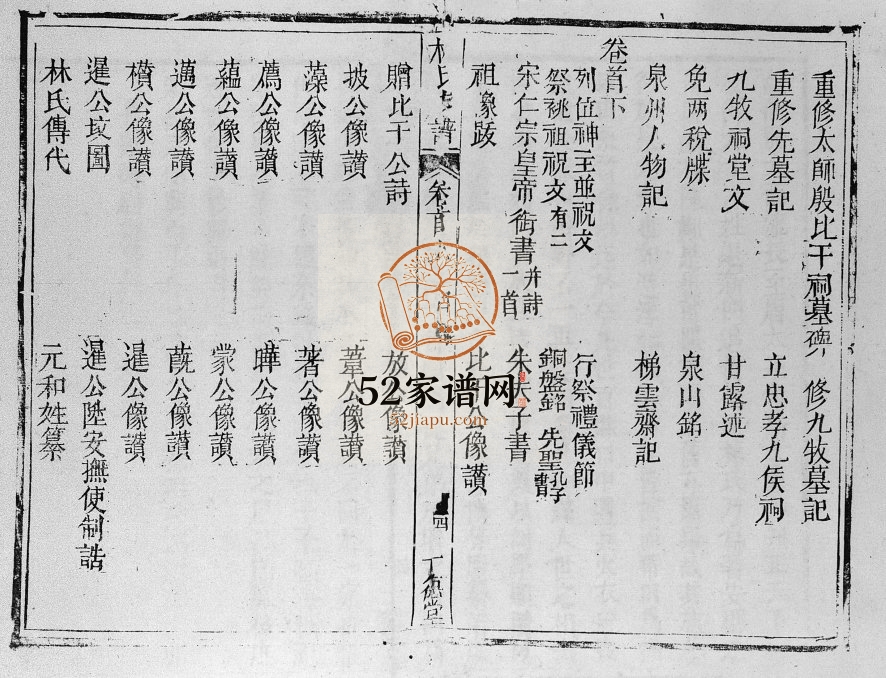 重修太師殷比干祠墓碑 修九牧墓記
重修先墓記 立忠孝九侯祠
九牧祠堂文 甘露述
免两稅牒 泉山銘
泉州人物記 梯雲齋記
卷首下
列位神主並祝文 行祭禮儀節
祭祧祖祝文有二 銅盤銘 先聖孔子書
宋仁宗皇帝御書并詩一首 朱夫子書
祖像跋 比干公像讃
林氏 譜 卷首 四
贈比干公詩 放公像讃
披公像讃 葦公像讃
藻公像讃 著公像讃
薦公像讃 曄公像讃
蘊公像讃 蒙公像讃
邁公像讃 蔇公像讃
櫕公像讃 暹公像讃
暹公坟圖 暹公陞安撫使制誥
林氏傳代 元和姓纂
52家谱网
52jiapu.com